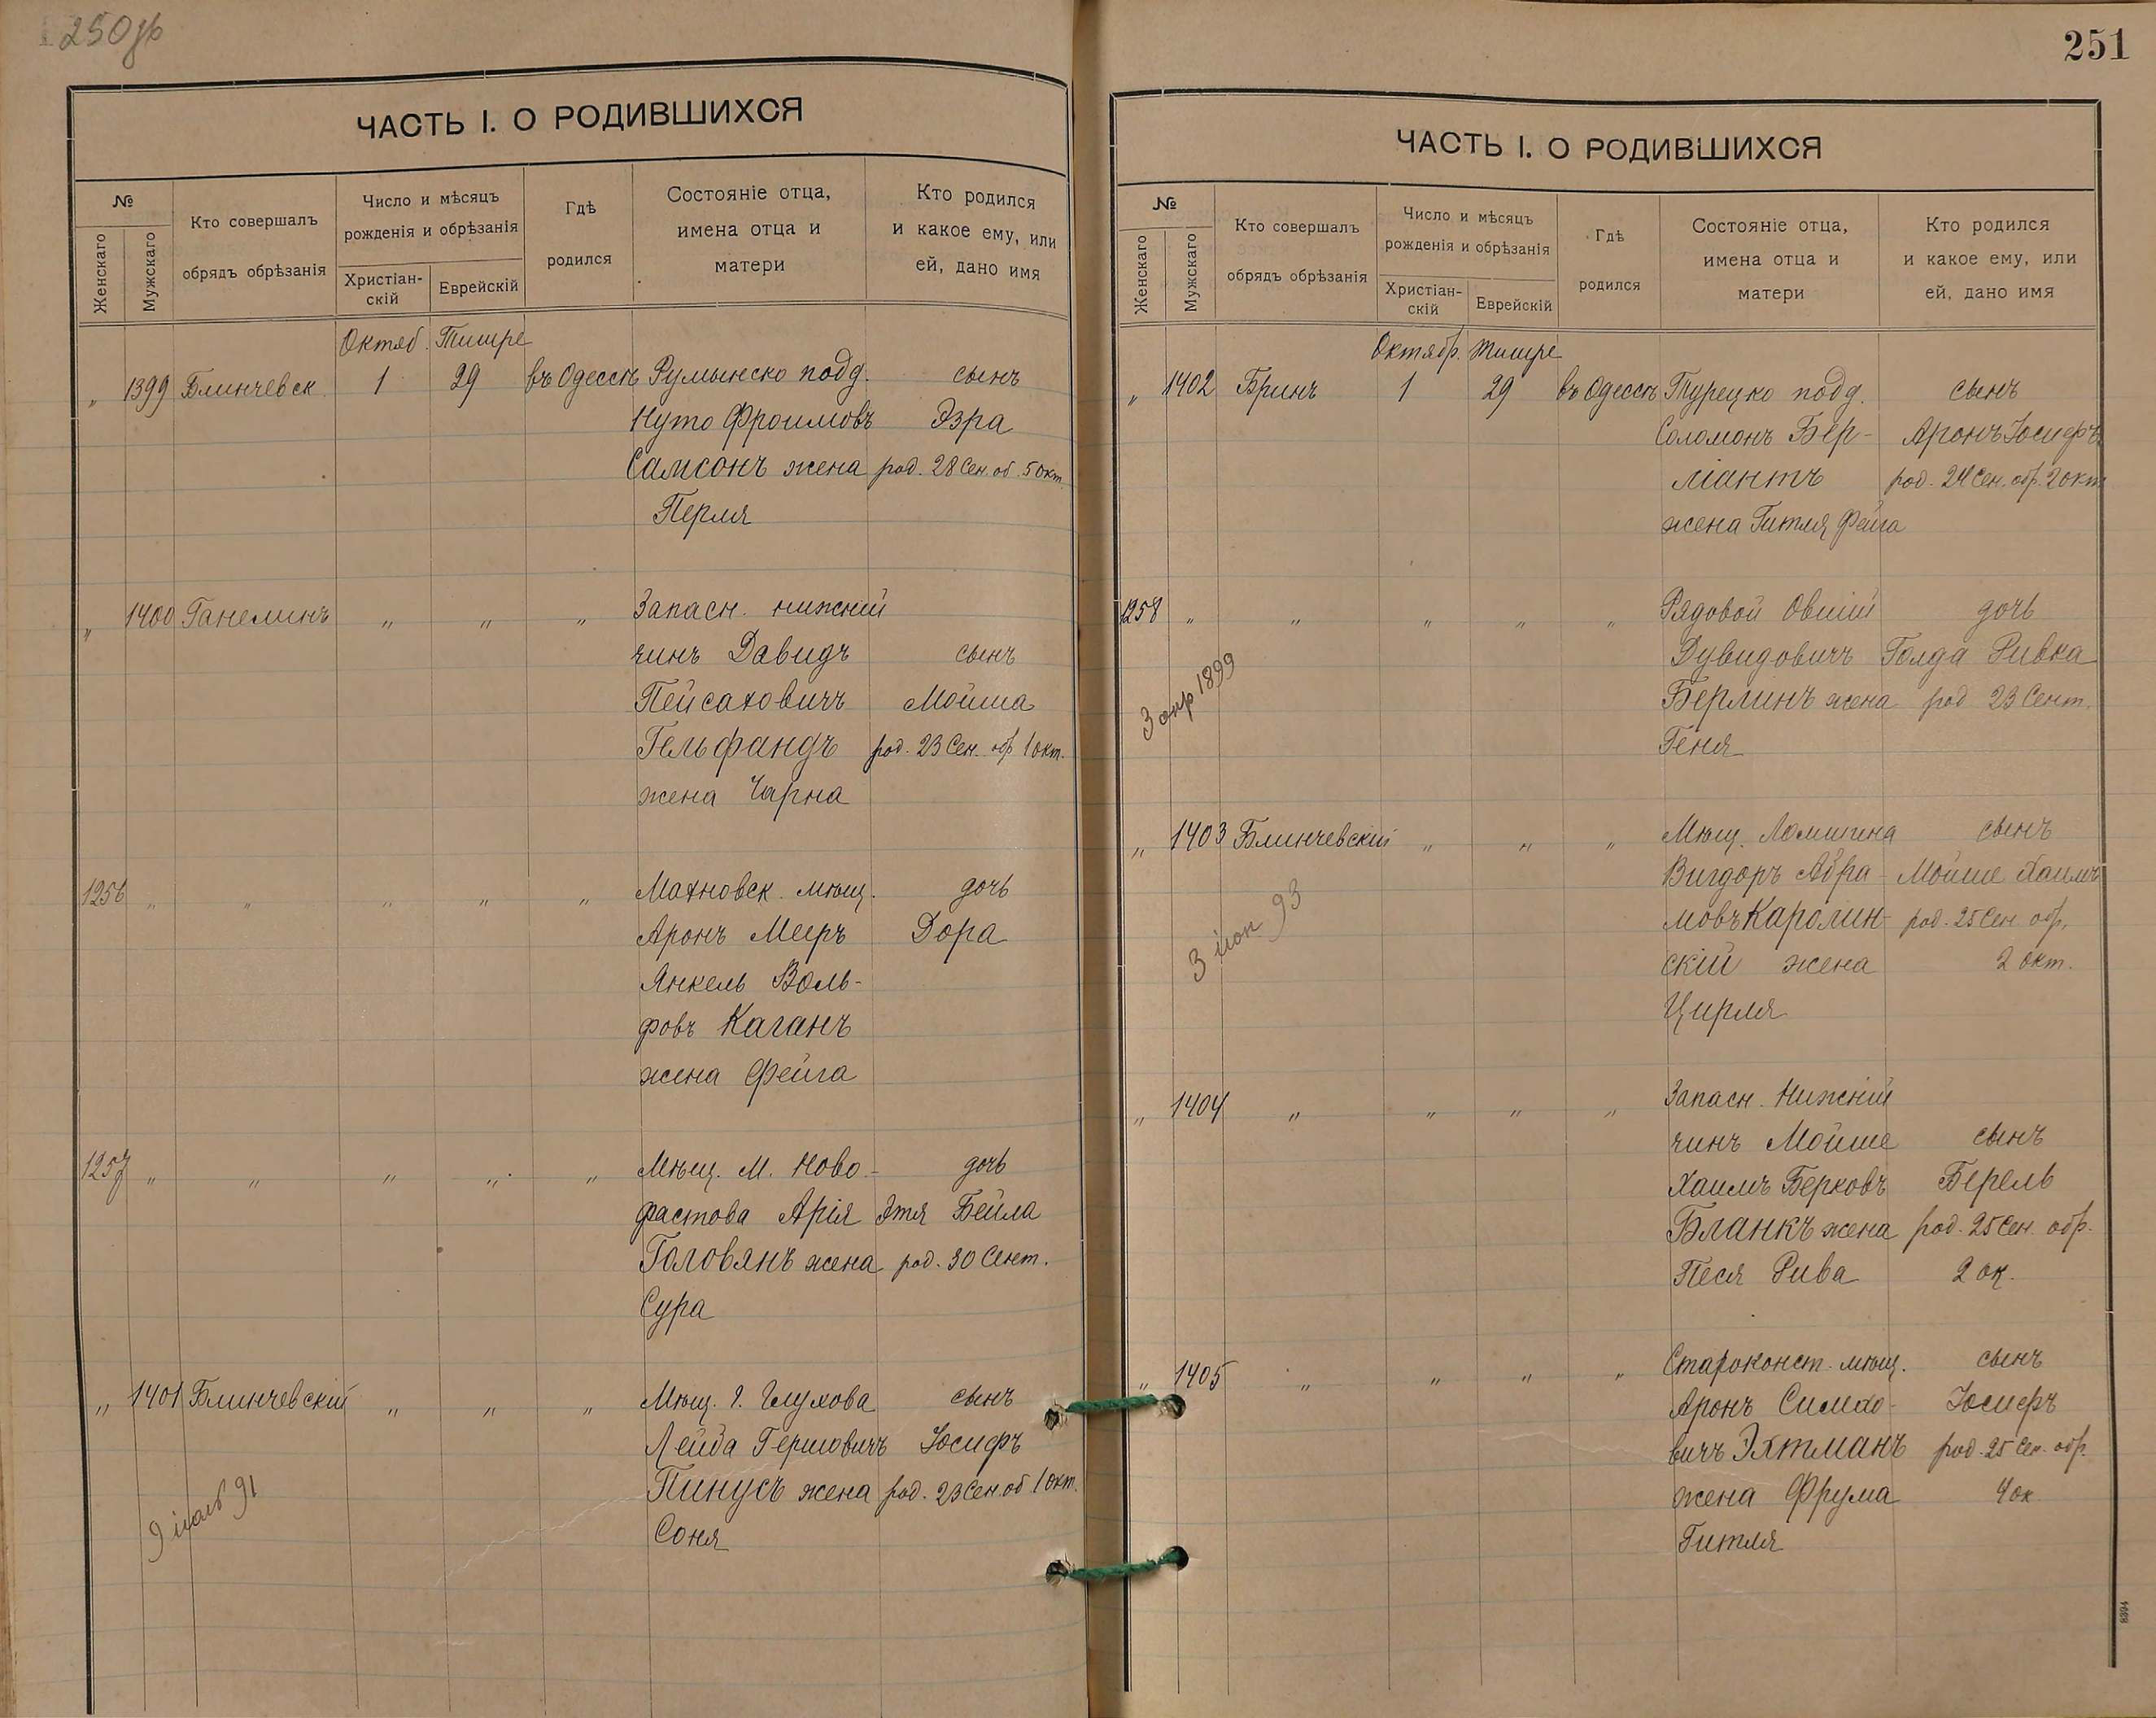 250 об
ЧАСТЬ I. О РОДИВШИХСЯ
№
Женскаго
Мужскаго
Кто совершалъ
обрядъ обрѣзанія
Число и мѣсяцъ
рожденія и обрѣзанія
Христіан-
скій
Еврейскій
Гдѣ
родился
Состояніе отца,
имена отца и
матери
Кто родился
и какое ему, или
ей, дано имя
Октяб. Тишре
„ 1399 Блинчевск 1 29 въ Одессѣ Румынско подд. сынъ
Нуто Фроимовъ Эзра
Самсонъ жена род. 28 Сен. об. 5 окт.
Перля
„ 1400 Ганелинъ „ „ „ Запасн. нижній
чинъ Давидъ сынъ
Пейсаховичъ Мойша
Гельфандъ род. 23 Сен. обр. 1 окт.
жена Чарна
1256 „ „ „ „ „ Махновск. мѣщ. дочь
Аронъ Меиръ Дора
Янкель Воль-
фовъ Каганъ
жена Фейга
1257 „ „ „ „ „ Мѣщ. м. Ново- дочь
фастова Арія Этя Бейла
Головянъ жена род. 30 Сент.
Сура
„ 1401 Блинчевскій „ „ „ Мѣщ. г. Глухова сынъ
Лейба Гершовичъ Іосифъ
Пинусъ жена род. 23 Сен. об 1 окт.
Соня
9 91
251
ЧАСТЬ I. О РОДИВШИХСЯ
№
Женскаго
Мужскаго
Кто совершалъ
обрядъ обрѣзанія
Число и мѣсяцъ
рожденія и обрѣзанія
Христіан-
скій
Еврейскій
Гдѣ
родился
Состояніе отца,
имена отца и
матери
Кто родился
и какое ему, или
ей, дано имя
Октябр. Тишре
„ 1402 Бринъ 1 29 въ Одессѣ Турецко подд. сынъ
Соломонъ Бер- Аронъ Іосифъ
ліантъ род. 24 Сен. обр. 2 окт
жена Гитля Фейга
1258 „ „ „ „ „ Рядовой Овшій дочь
Дувидовичъ Голда Ривка
Берлинъ жена род 23 Сент.
Геня
3 апр 1899
„ 1403 Блинчевскій „ „ „ Мѣщ. Ломшина сынъ
Вигдоръ Абра- Мойше Хаимъ
мовъ Каролин- род. 25 Сен обр.
скій жена 2 Окт.
Цирля
3 93
„ 1404 „ „ „ „ Запасн. Нижній
чинъ Мойше сынъ
Хаимъ Берковъ Берель
Бланкъ жена род. 25 Сен. обр.
Песя Рива 2 ок.
„ 1405 „ „ „ „ Староконст. мѣщ. сынъ
Аронъ Симхо- Іосифъ
вичъ Эхтманъ род. 25 Сен. обр.
жена Фрума 4 ок
Гитля
8394